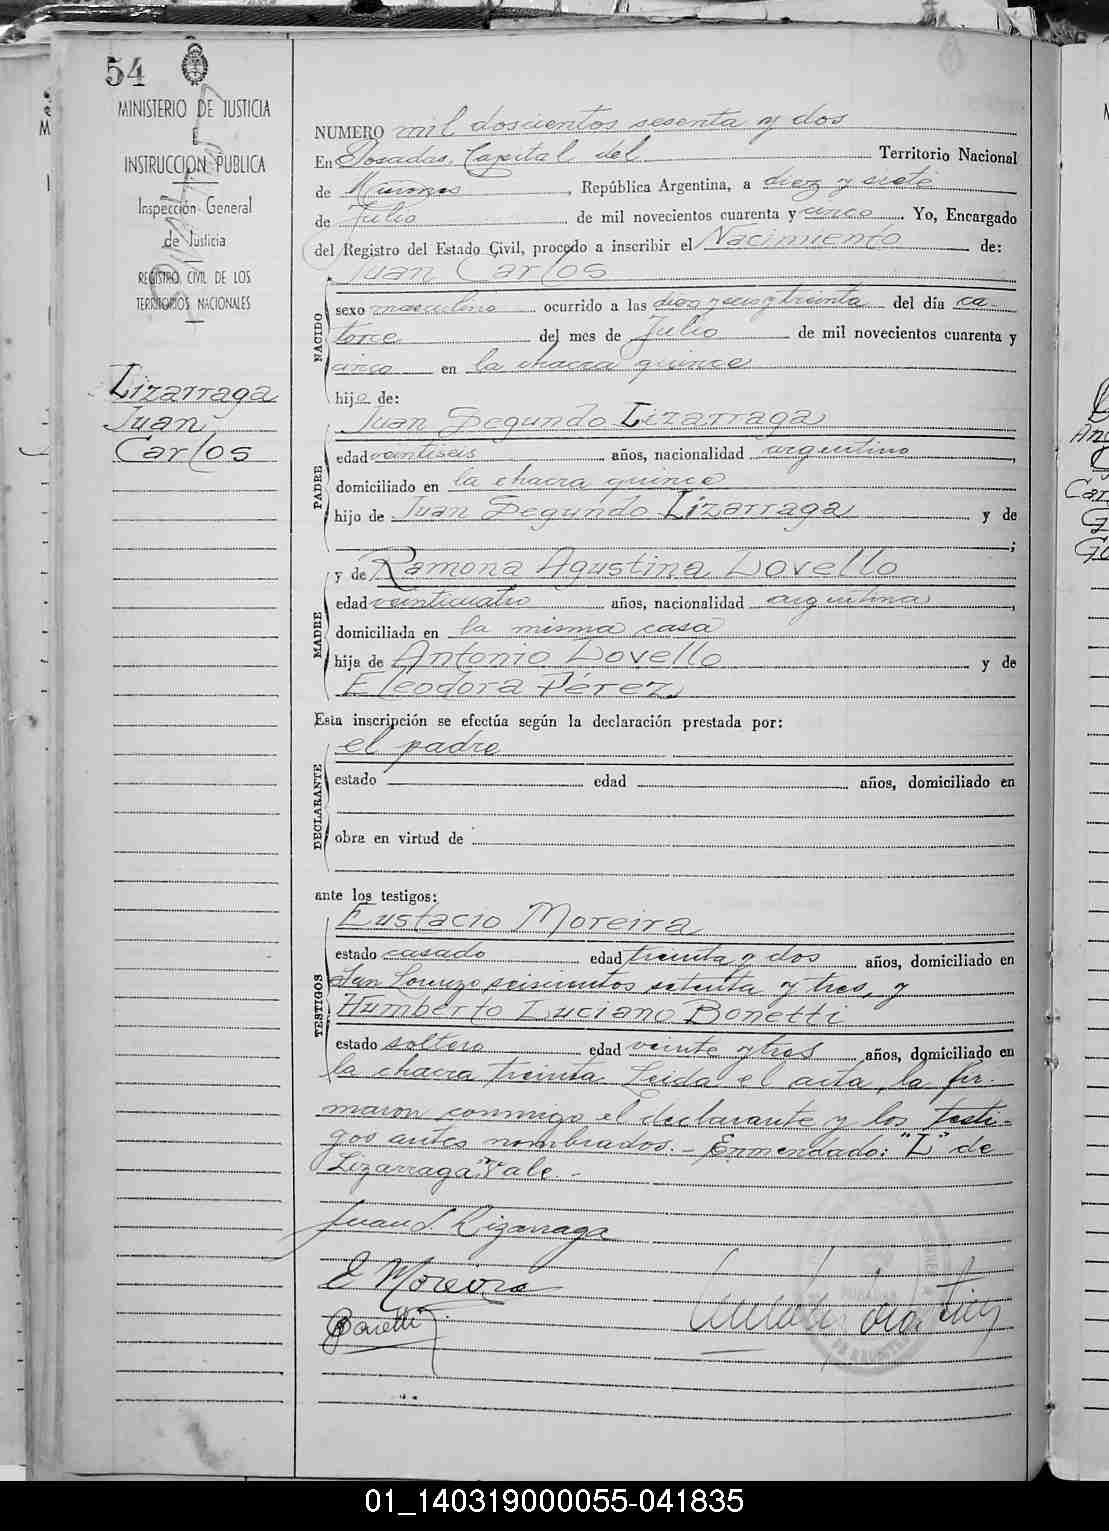 54
MINISTERIO DE JUSTICIA
E
INSTRUCCION PUBLICA
Inspección General
de Justicia
REGISTRO CIVIL DE LOS
TERRITORIOS NACIONALES
Lizarraga
Juan
Carlos
NUMERO mil doscientos sesenta y dos
En Posadas, Capital del Territorio Nacional
de Misiones, República Argentina, a diez y siete
de Julio de mil novecientos cuarenta y cinco. Yo, Encargado
del Registro del Estado Civil, procedo a inscribir el Nacimiento de:
Juan Carlos
NACIDO
sexo masculino ocurrido a las diez y seis y treinta del día ca-
torce del mes de Julio de mil novecientos cuarenta y
cinco en la chacra quince
hijo de:
Juan Segundo Lizarraga
PADRE
edad veintiseis años, nacionalidad argentino,
domiciliado en la chacra quince
hijo de Juan Segundo Lizarraga y de
;
y de Ramona Agustina Lovello
MADRE
edad veinticuatro años, nacionalidad argentina,
domiciliada en la misma casa
hija de Antonio Lovello y de
Eleodora Pérez
Esta inscripción se efectúa según la declaración prestada por:
el padre
DECLARANTE
estado edad años, domiciliado en
obra en virtud de
ante los testigos:
Eustacio Moreira
TESTIGOS
estado casado edad treinta y dos años, domiciliado en
San Lorenzo seiscientos setenta y tres, y
Humberto Luciano Bonetti
estado soltero edad veinte y tres años, domiciliado en
la chacra treinta. Leida el acta, la fir-
maron conmigo el declarante y los testi-
gos antes nombrados.- Enmendado: "L" de
Lizarraga. Vale.-
Juan S. Lizarraga
E Moreira
Bonetti
01_140319000055-041835